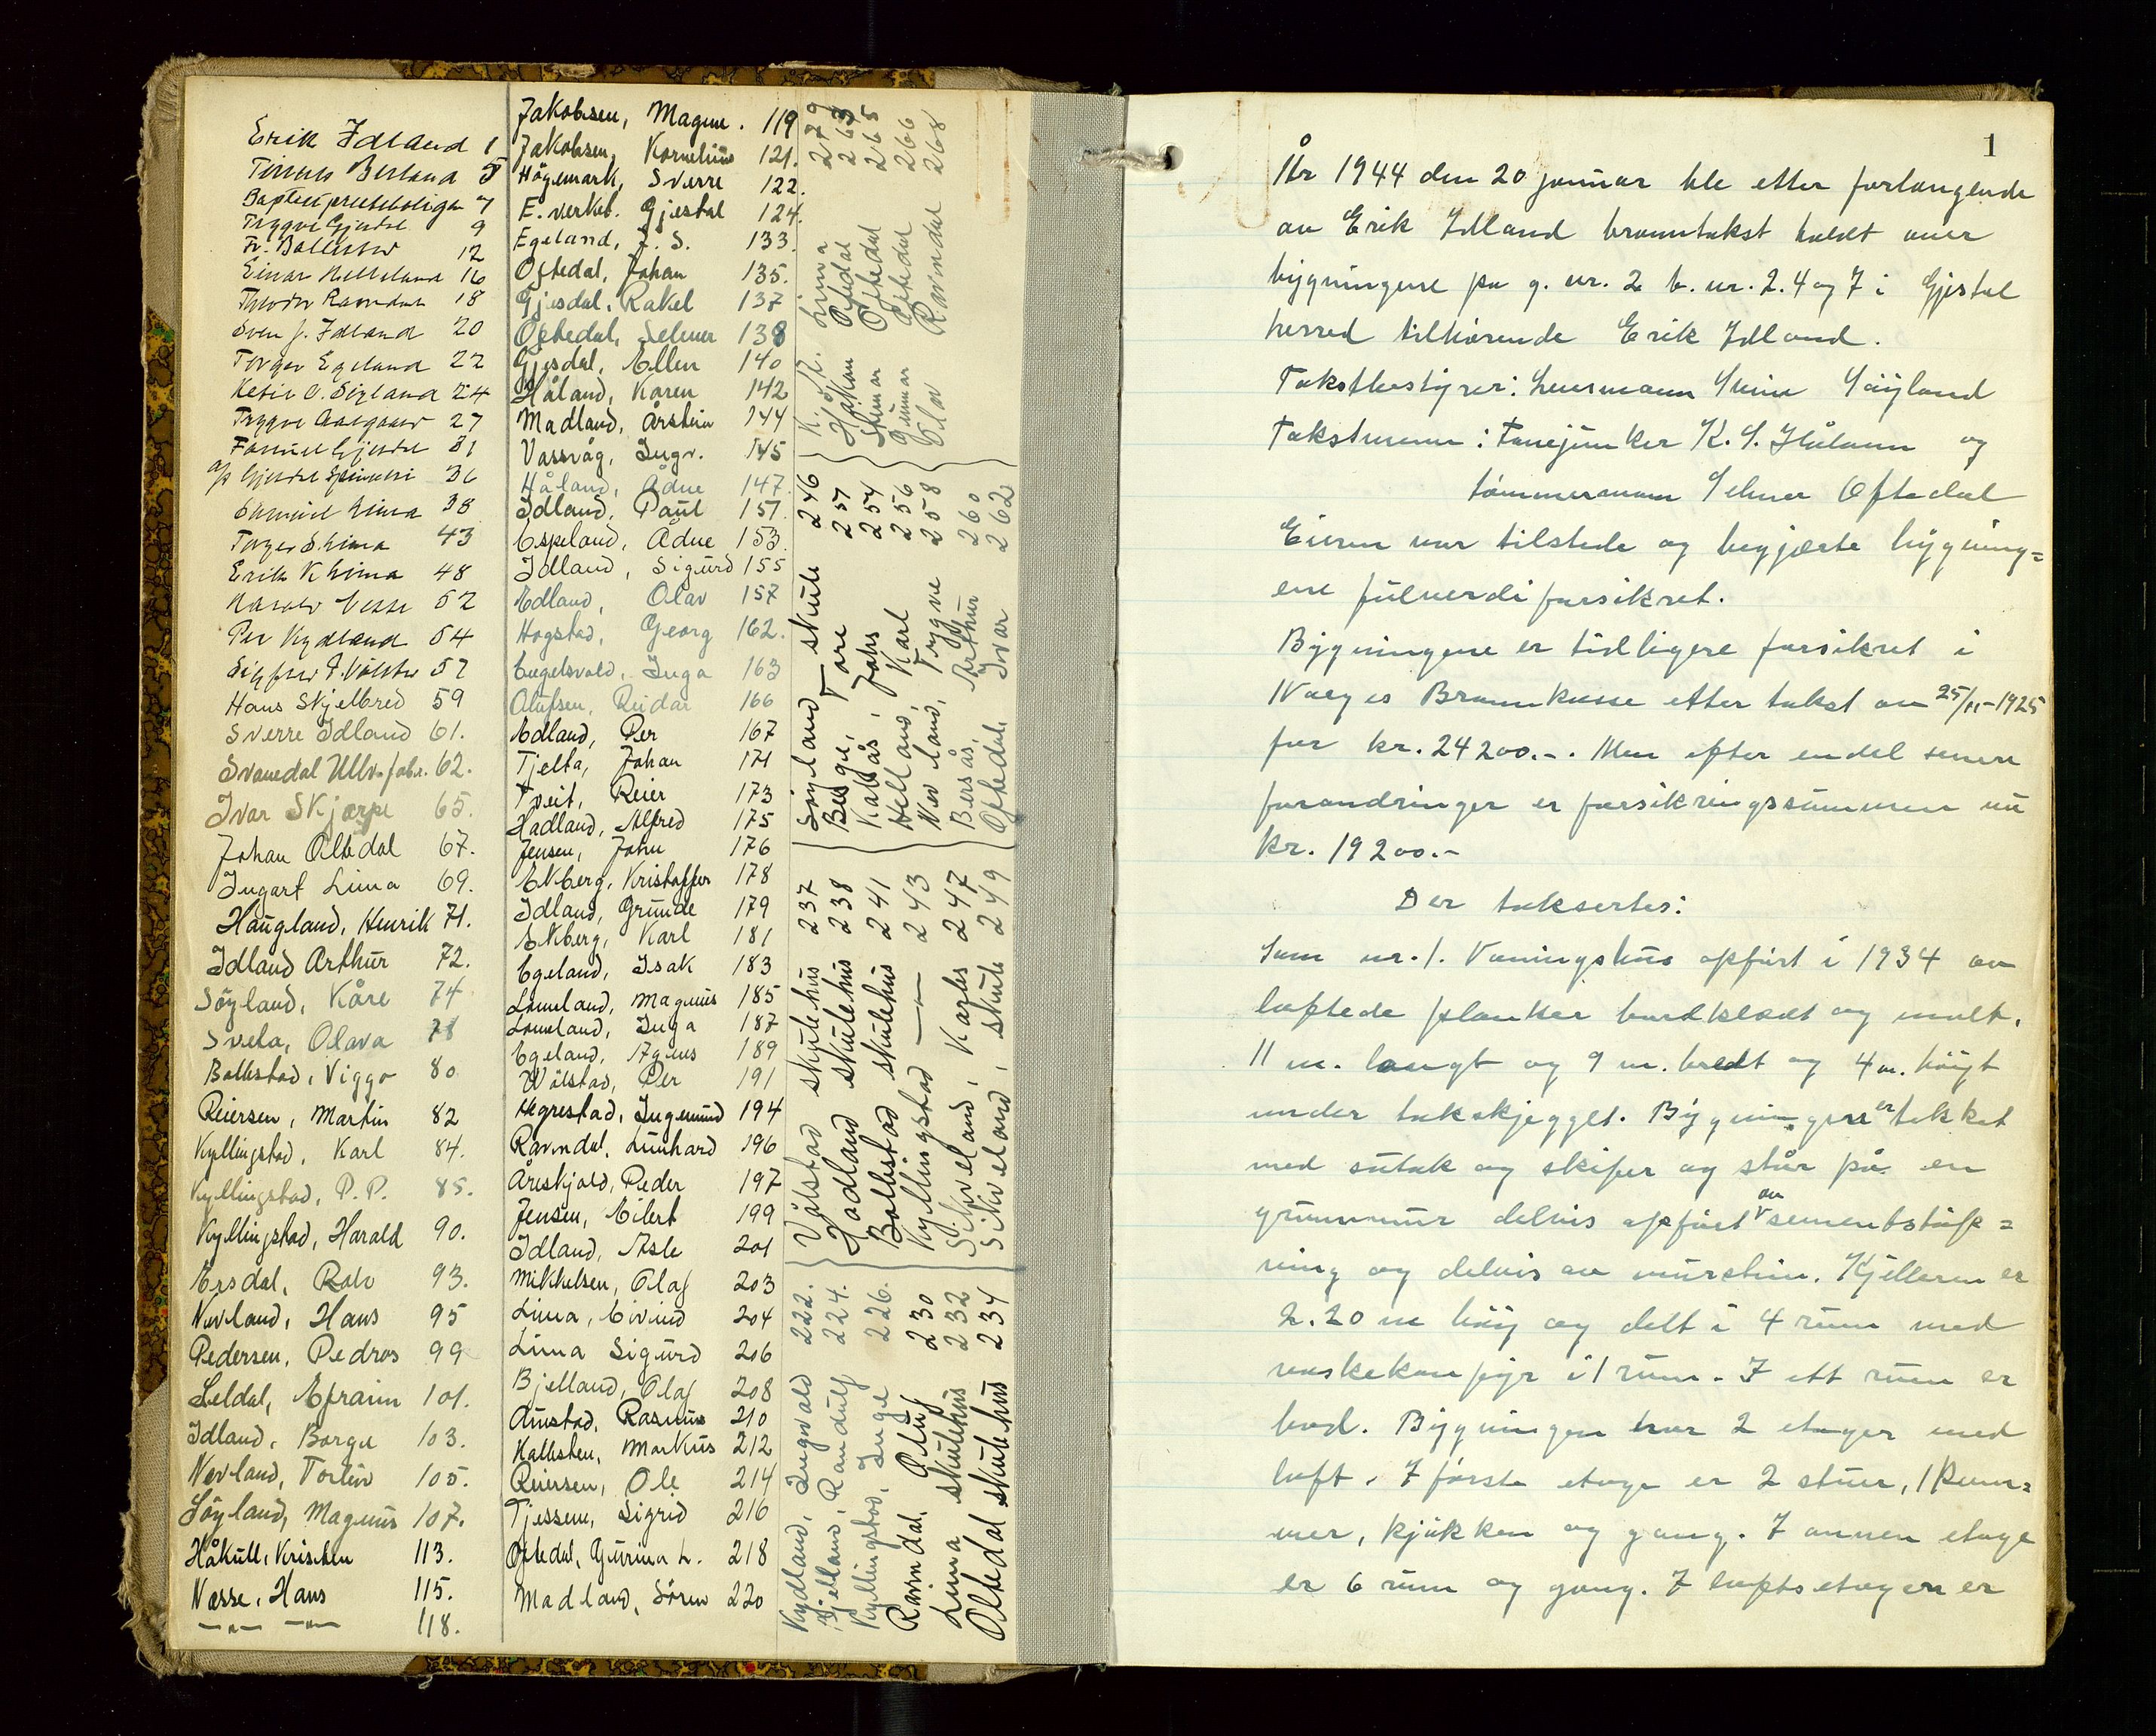 Erik Idland 1
Berland 5
7
Trygve Gjestal 9
Fr. Bollestad 12
Einar Helleland 16
Ravndal 18
Sven J. Idland 20
Torger Egeland 22
Ketil O. Søyland 24
Trygve Aalgaard 27
Samuel Gjestal 31
A/s Gjestal Spinneri 36
Samuel Lima 38
Torger S Lima 43
Erik K Lima 48
Harald Vesse 52
Per Kydland 54
57
Hans Skjelbred 59
Sverre Idland 61.
Svanedal Ullv.fabr. 62.
Ivar Skjærpe 65.
Johan Oltedal 67.
Ingart Lima 69.
Haugland, Henrik 71.
Idland Arthur 72.
Söyland, Kåre 74
Svela, Olava 78
Bollestad, Viggo 80
Reiersen, Martin 82
Kyllingstad, Karl 84.
Kyllingstad, P. P. 85.
Kyllingstad, Harald 90.
Ersdal, Rolv 93.
Nevland, Hans 95
Pedersen, Pedros 99
Seldal, Efraim 101.
Idland, Borge 103.
Nevland, Torleiv 105.
Söyland, Magnus 107.
Håkull, Kristen 113.
Næsse, Hans 115.
—"— —"— 118.
Jakobsen, Magne. 119
Jakobsen, Kornelius 121.
Högemark, Sverre 122.
E.verket. Gjestal 124.
Egeland, J. S. 133.
Oftedal, Johan 135.
Gjesdal, Rakel 137
Oftedal, Selmer 138
Gjesdal, Ellen 140
Håland, Karen 142
Madland, Arstein 144
Vassvåg, Ingv. 145
Håland, Ådne 147.
Idland, Paul 151
Espeland, Ådne 153.
Idland, Sigurd 155
Edland, Olav 157
Hogstad, Georg 162.
Engelsvold, Inga 163
Olufsen, Reidar 166
Edland, Per 167
Tjelta, Johan 171
Tveit, Reier 173
Hadland, Alfred 175
Jensen, John 176
Ekberg, Kristoffer 178
Idland, Grunde 179
Ekberg, Karl 181
Egeland, Isak 183
Lomeland, Magnus 185
Lomeland, Inga 187
Egeland, Agnes 189
Wölstad, Per 191
Hegrestad, Ingemund 194
Ravndal, Lunhard 196
Åreskjold, Peder 197
Jensen, Eilert 199
Idland, Asle 201
Mikkelsen, Olaf 203
Lima, Eivind 204
Lima Sigurd 206
Bjelland, Olaf 208
Austad, Rasmus 210
Kallesten, Markus 212
Reiersen, Ole 214
Tjessem, Sigrid 216
Oftedal, Gurina L. 218
Madland, Sören 220
Kydland, Ingvald 222.
Bjelland, Randulf 224.
Kyllingstad, Inge 226.
Ravndal, Oluf 230
Lima skulehus 232
Oltedal skulehus 234
Völstad skulehus 237
Hadland skulehus 238
Bollestad skulehus 241
Kyllingstad —"— 243
Sikveland, Karles 247
Sikveland, skule 249
Söyland skule 246
Berge, Tore 251
Kallås, John 254
Helland, Karl 256
Nevland, Trygve 258
Bersås, Arthur 260
Oftedal, Ivar 262
K. ö. R. Lima 279
Håkon Oftedal 263
Steinar Oftedal 265
Gunnar Oftedal 266
Olav Ravndal 268
1
År 1944 den 20 januar ble etter forlangende
av Erik Idland branntakst holdt over
bygningene på g. nr. 2 b. nr. 2. 4 og 7 i Gjestal
herred tilhørende Erik Idland.
Takstbestyrer: Lensmann Svein Söyland
Takstmenn: Fanejunker K. S. Håland og
tømmermann Selmer Oftedal
Eieren var tilstede og begjærte bygning=
ene fullverdiforsikret.
Bygningene er tidligere forsikret i
Norges Brannkasse etter takst av 25/11-1925
for kr. 24200.-. Men efter endel senere
forandringer er forsikringssummen nu
kr. 19200.-
Der takseertes:
Som nr. 1. Vaningshus opført i 1934 av
laftede planker bordklædt og malt.
11 m. langt og 9 m. bredt og 4 m. höigt
under takskjegget. Bygningene er tekket
med sutak og skifer og står på en
grunnmur delvis opfört av sementstöp=
ning og delvis av murstein. Kjelleren er
2.20 m höi og delt i 4 rum med
vaskekomfyr i 1 rum. I ett rum er
bad. Bygningen har 2 etager med
loft. I förste etage er 2 stuer, 1 kam=
mer, kjökken og gang. I annen etage
er 6 rum og gang. I loftsetagen er